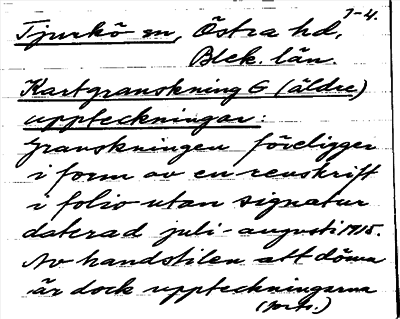 1-4.
Tjurkö sn, Östra hd,
Blek. län.
Kartgranskning G (äldre)
uppteckningar:
Granskningen föreligger
i form av en renskrift
i folio utan signatur
daterad juli-augusti 1915.
Av handstilen att döma
är dock uppteckningarna
(forts.)